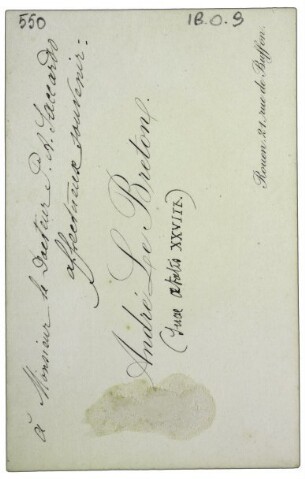 550
IB.O.9
à Monsieur le Docteur P. A. Saccardo
affectueux souvenir:
André Le Breton.
(suae ætatis XXVIII.)
Rouen. 21, rue de Buffon.